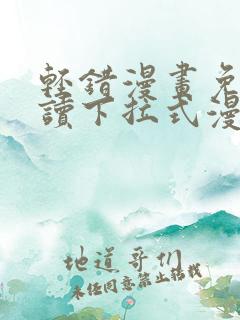 轻错漫畫免
讀下拉式漫
地道哥们
未经同意禁止转载